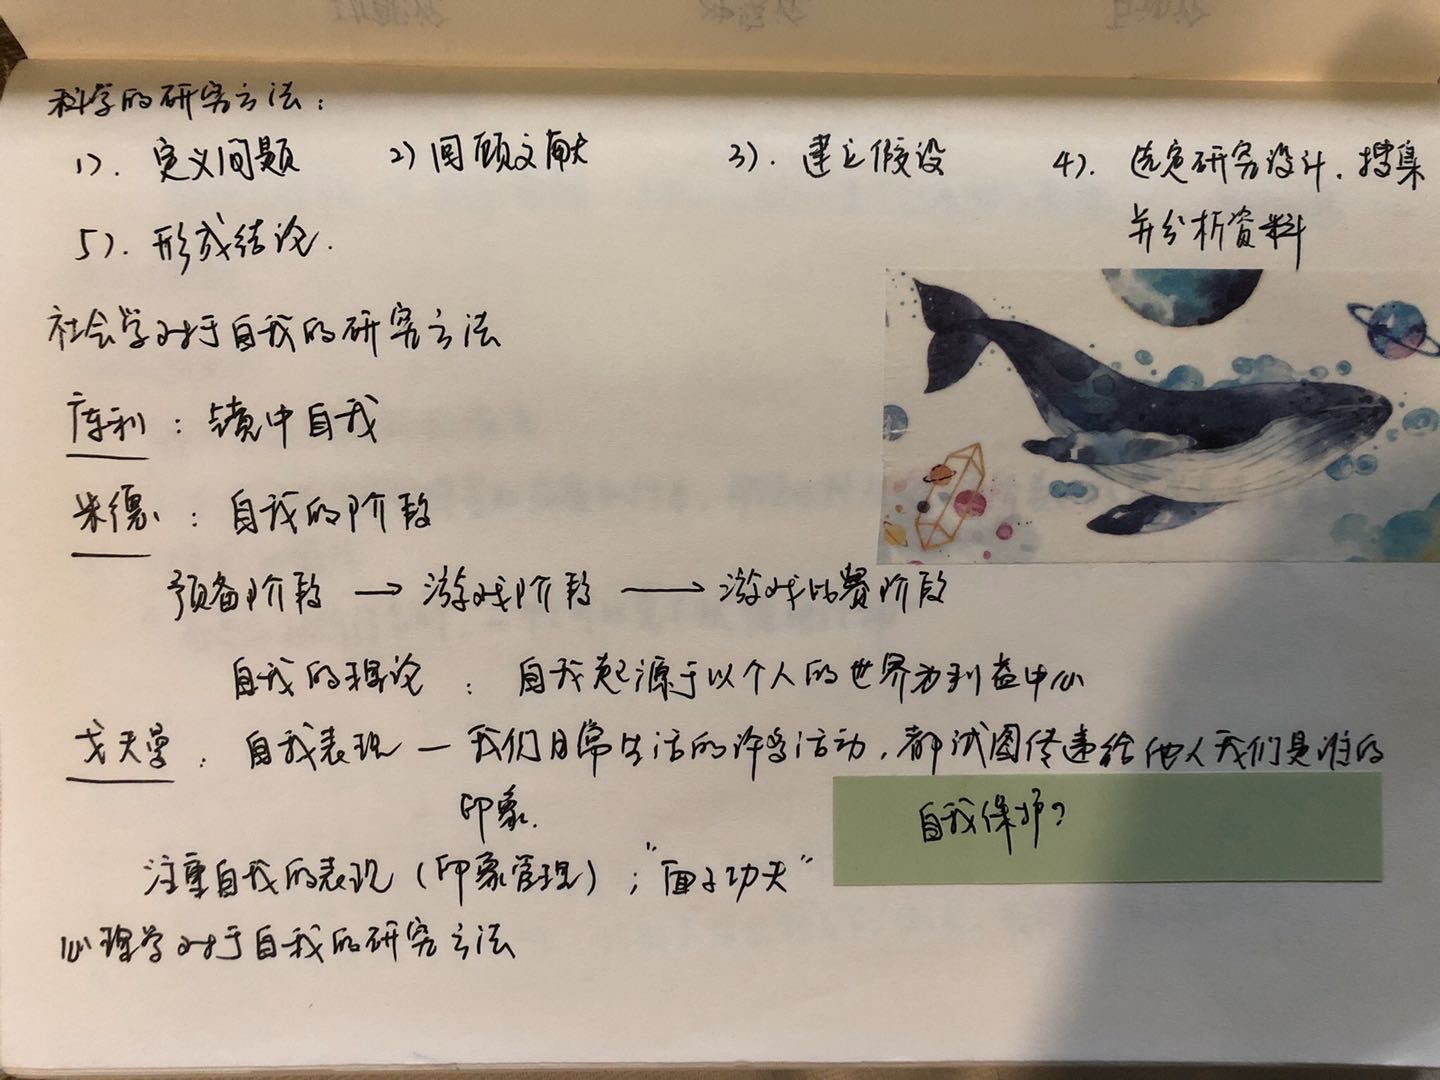 科学的研究方法：
1）. 定义问题 2）回顾文献 3）. 建立假设 4）. 选定研究设计. 搜集
并分析资料
5）. 形成结论.
社会学对于自我的研究方法
库利：镜中自我
米德：自我的阶段
预备阶段 → 游戏阶段 → 游戏比赛阶段
自我的理论：自我起源于以个人的世界为利益中心
戈夫曼：自我表现 — 我们日常生活的许多活动，都试图传递给他人我们是谁的
印象.
自我保护？
注重自我的表现（印象管理）；“面子功夫”
心理学对于自我的研究方法